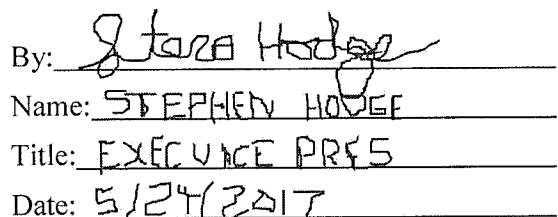 By: Hodge
Name: STEPHEN HODGE
Title: EXECUVICE PRES
Date: 5/24/2017